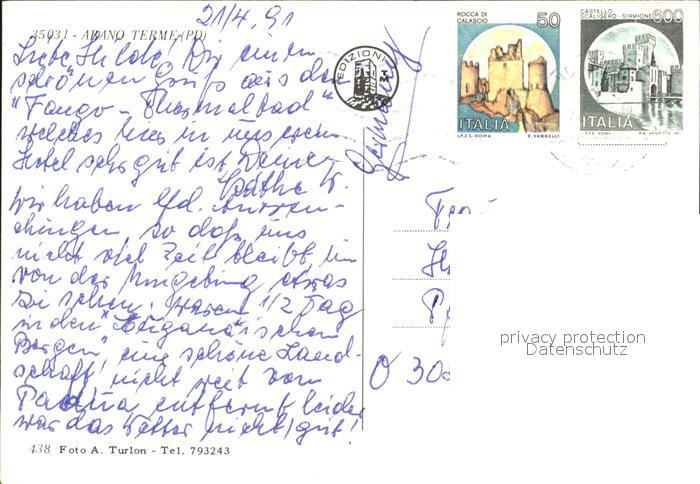 21/4. 91
35031 - ABANO TERME (PD)
Liebe Hilde! Dir einen
schönen Gruß aus dem
"Fango - Thermalbad"
welches hier in unserem
Hotel sehr gut ist. Deine
Käthe K.
Wir haben lfd. Anwen-
dungen, so daß uns
nicht viel Zeit bleibt, um
von der Umgebung etwas
zu sehen. Waren 1/2 Tag
in den "Euganäischen
Bergen" eine schöne Land-
schaft! nicht weit von
Padua entfernt leider
war das Wetter nicht gut!
438 Foto A. Turlon - Tel. 793243
EDIZIONI
ROCCA DI
CALASCIO
50
ITALIA
I.P.Z.S. - ROMA E. VANGELLI
CASTELLO
SCALIGERO - SIRMIONE
600
ITALIA
I.P.Z.S. ROMA
Germany
Fra
Hi
O 300
privacy protection
Datenschutz